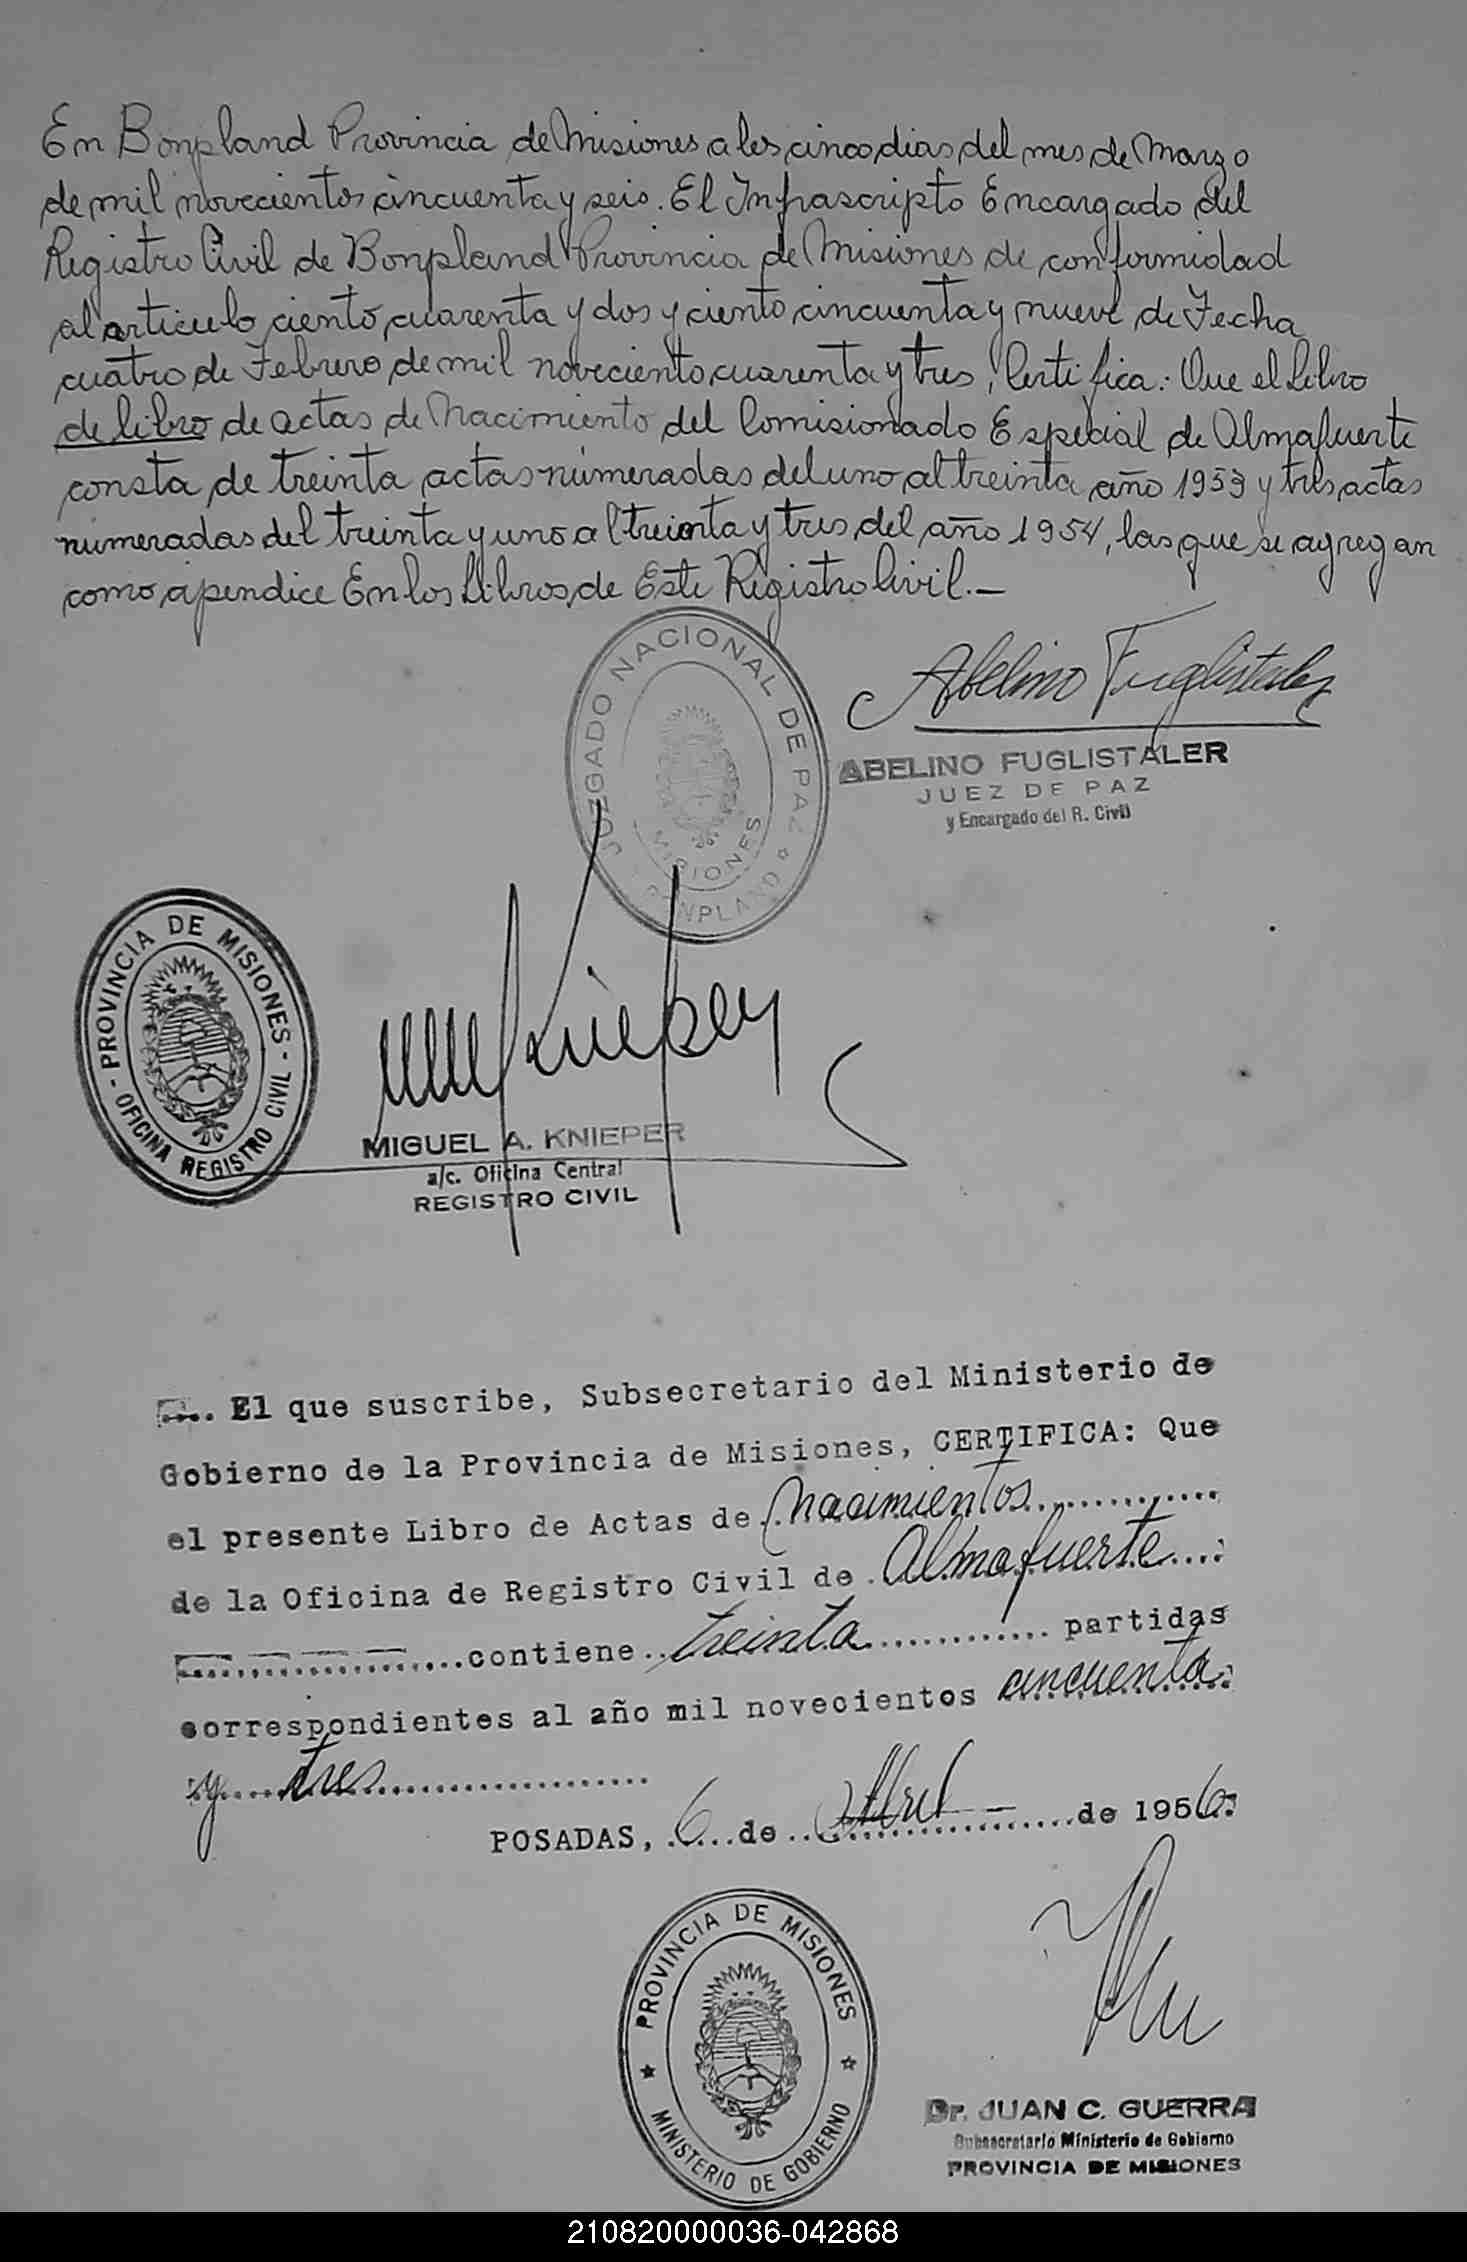 En Bonpland Provincia de Misiones a los cinco dias del mes de Marzo
de mil novecientos cincuenta y seis. El Infrascripto Encargado del
Registro Civil de Bonpland Provincia de Misiones de conformidad
al articulo ciento cuarenta y dos y ciento cincuenta y nueve de Fecha
cuatro de Febrero de mil noveciento cuarenta y tres, Certifica: Que el Libro
de libro de actas de Nacimiento del Comisionado Especial de Almafuerte
consta de treinta actas numeradas del uno al treinta año 1953 y tres actas
numeradas del treinta y uno al treinta y tres del año 1954, las que se agregan
como apendice En los Libros de Este Registro Civil.—
JUZGADO NACIONAL DE PAZ
MISIONES
BONPLAND
Abelino Fuglistaler
ABELINO FUGLISTALER
JUEZ DE PAZ
y Encargado del R. Civil
PROVINCIA DE MISIONES
OFICINA REGISTRO CIVIL
Knieper
MIGUEL A. KNIEPER
a/c. Oficina Central
REGISTRO CIVIL
El que suscribe, Subsecretario del Ministerio de
Gobierno de la Provincia de Misiones, CERTIFICA: Que
el presente Libro de Actas de Nacimientos
de la Oficina de Registro Civil de Almafuerte
contiene treinta partidas
correspondientes al año mil novecientos cincuenta
y tres
POSADAS, 6 de Abril de 1956.
PROVINCIA DE MISIONES
MINISTERIO DE GOBIERNO
Dr. JUAN C. GUERRA
Subsecretario Ministerio de Gobierno
PROVINCIA DE MISIONES
210820000036-042868